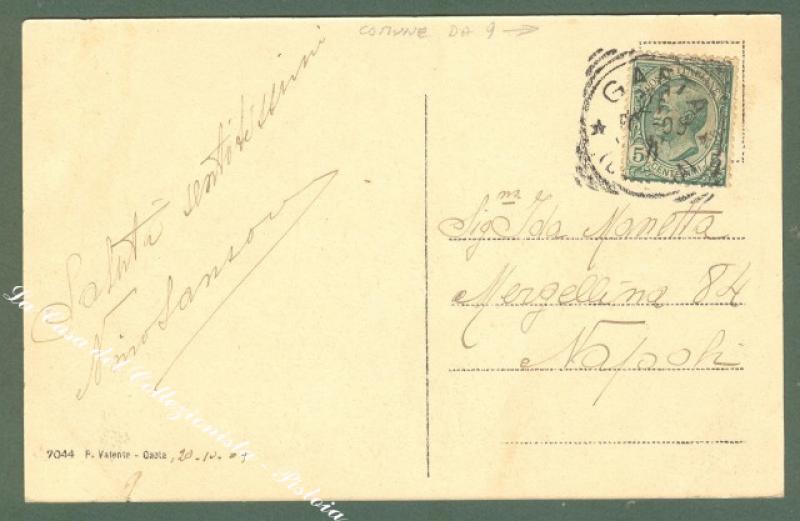 COMUNE DA 9 →
Saluti sentitissimi
Nino Sansow
GAETA
5
CENTESIMI
Sig.na Ida Manetta
Mergellina 84
Napoli
La Casa del Collezionista - Pistoia
7044 P. Valente - Gaeta, 20-10-09